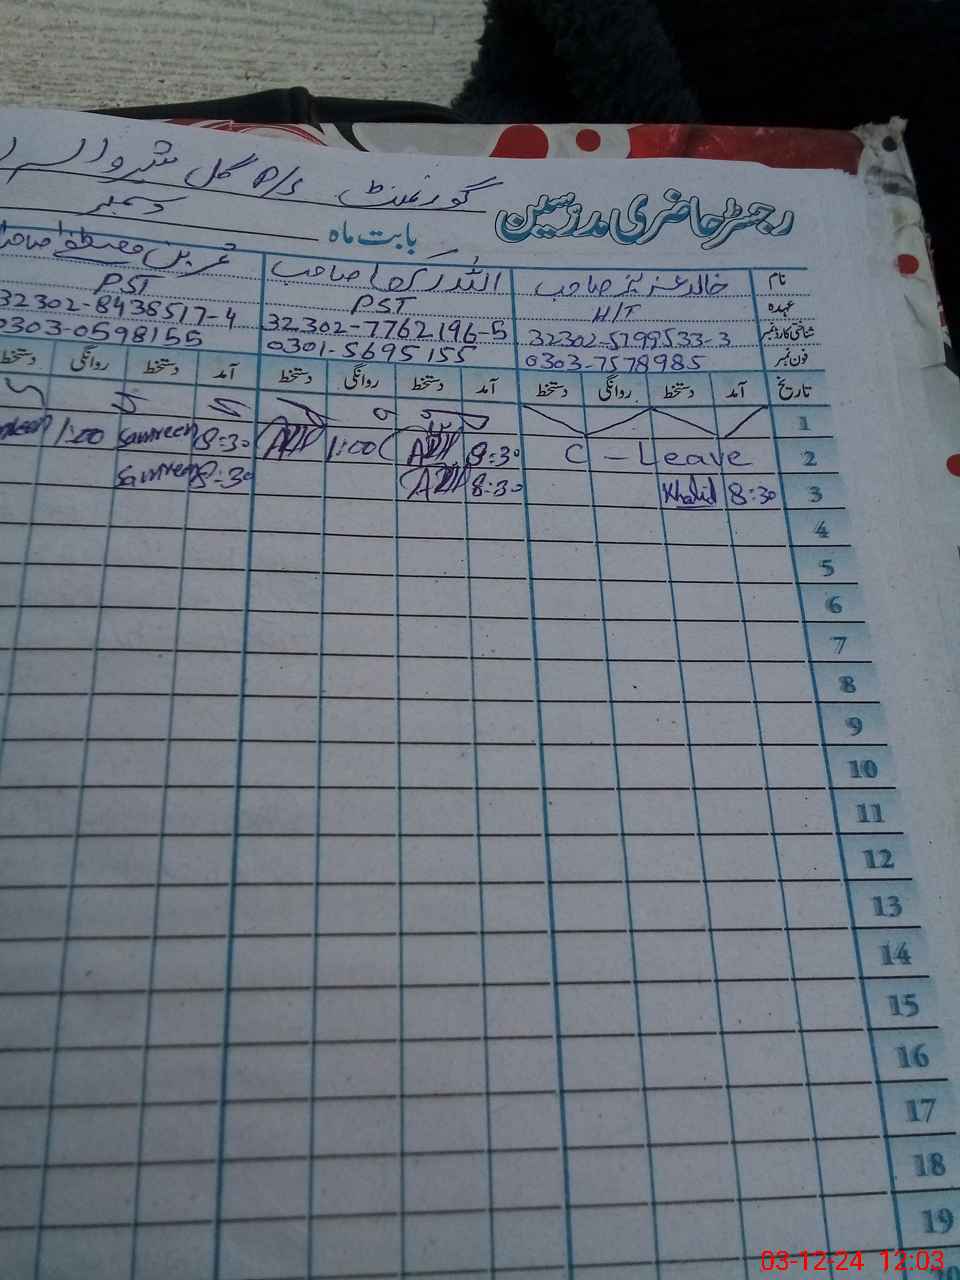 گورنمنٹ P/S گل شیر والہ
رجسٹر حاضری مدرسین
بابت ماہ دسمبر
نام خالد عزیز صاحب اللہ رکھا صاحب
عہدہ H/T PST PST
شناختی کارڈ نمبر 32302-5799533-3 32302-7762196-5 32302-8438517-4
فون نمبر 0303-7578985 0301-5695155 0303-0598155
تاریخ آمد دستخط روانگی دستخط آمد دستخط روانگی دستخط آمد دستخط روانگی دستخط
1
2 C - Leave 8:30 1:00 8:30 Samreen 1:00
3 8:30 Khalid 8:30 8:30 Samreen
4
5
6
7
8
9
10
11
12
13
14
15
16
17
18
19
20
03-12-24 12:03